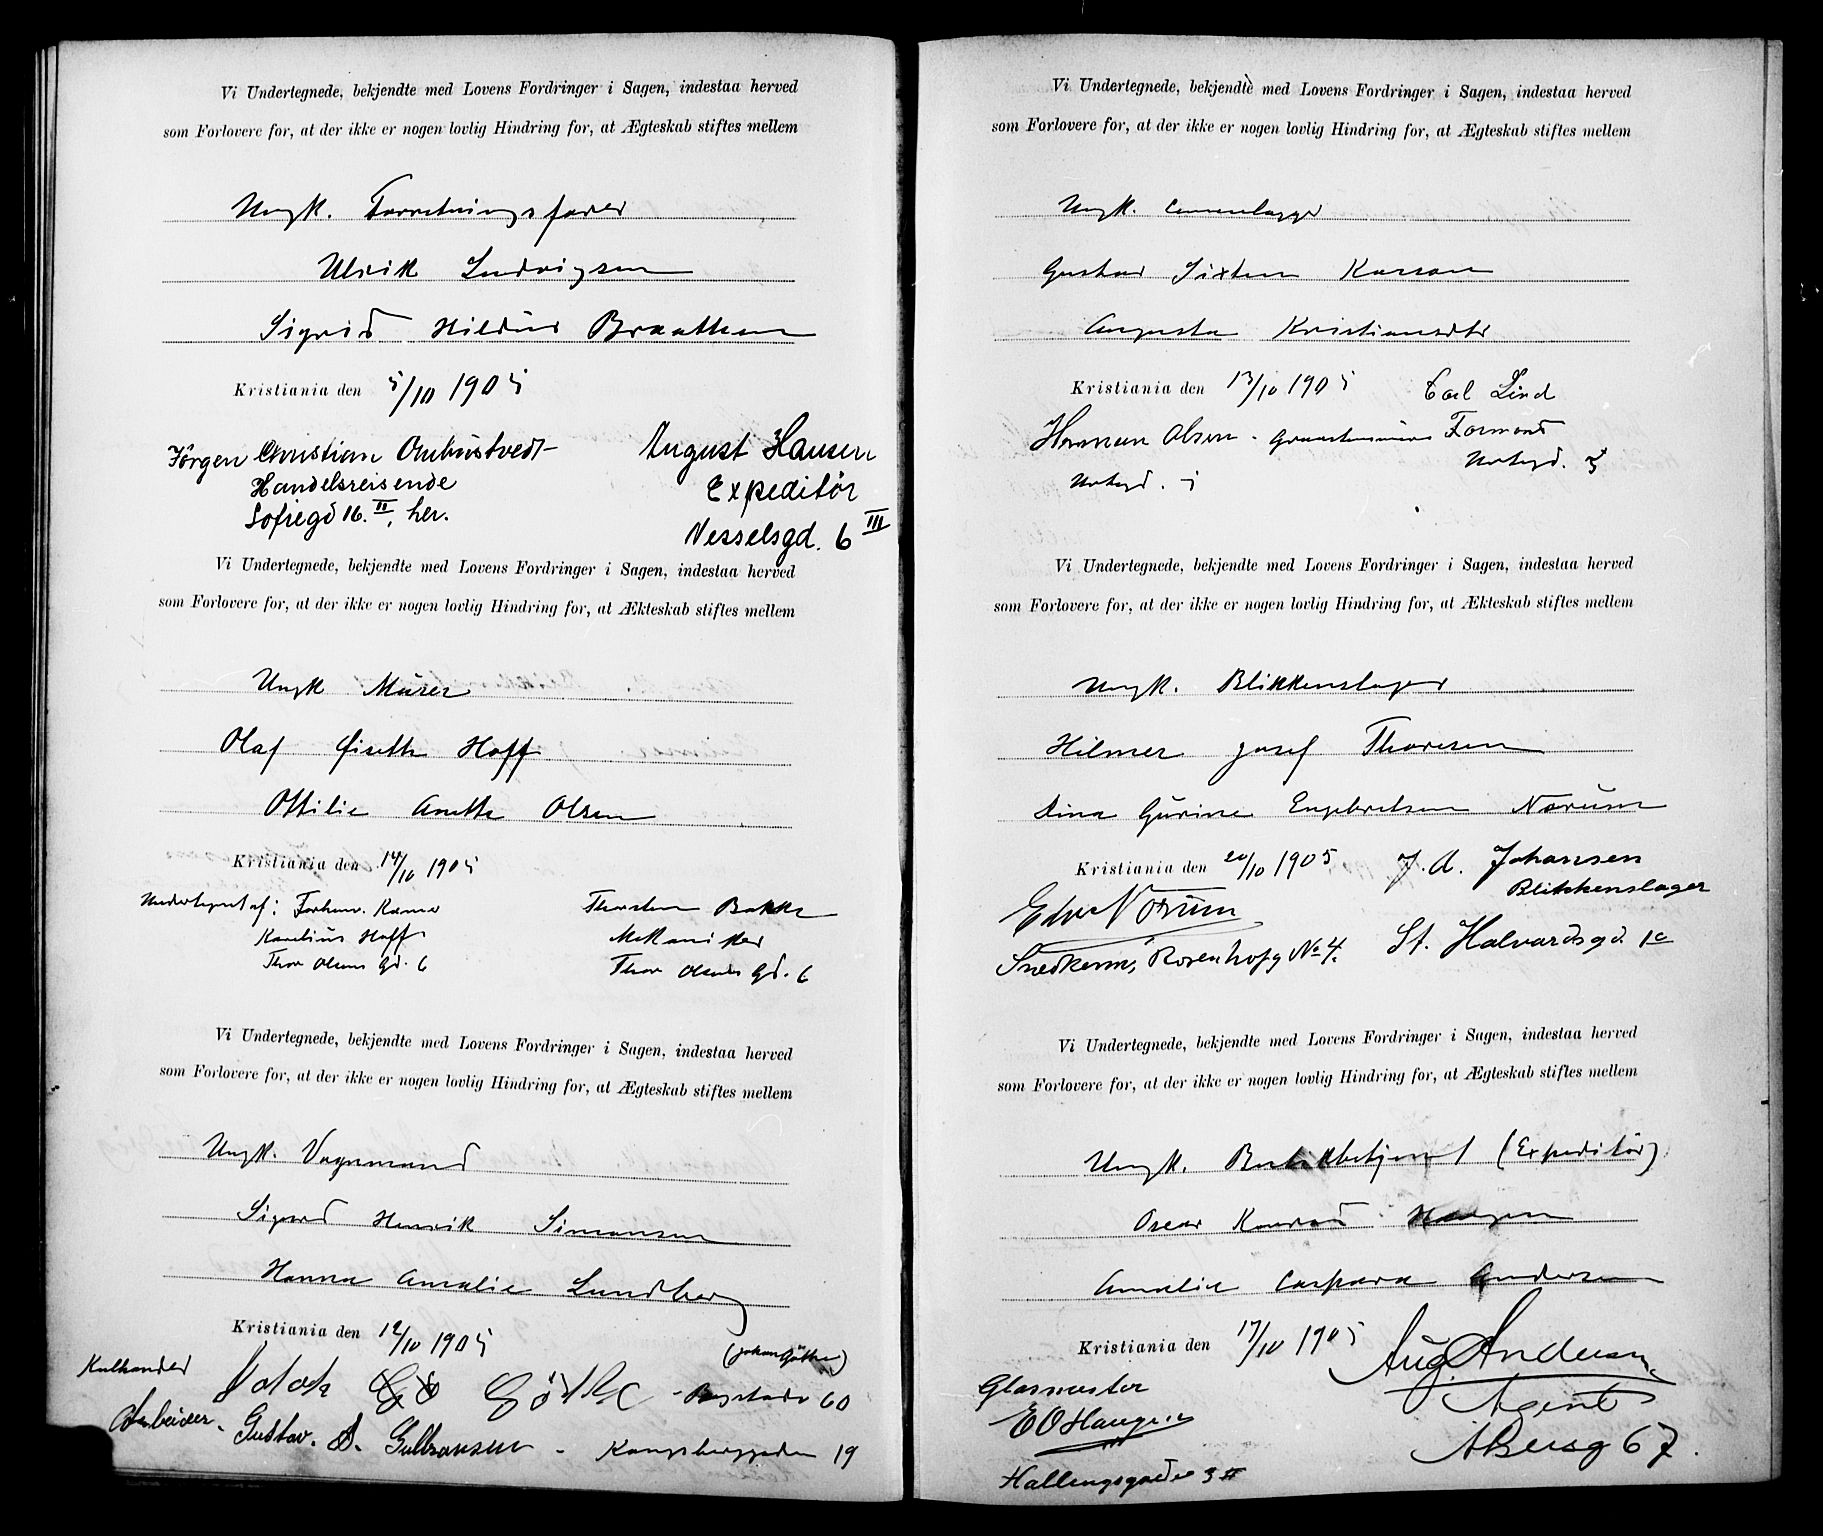 Vi Undertegnede, bekjendte med Lovens Fordringer i Sagen, indestaa herved
som Forlovere for, at der ikke er nogen lovlig Hindring for, at Ægteskab stiftes mellem
Ungk. Forretningsfører
Ulrik Ludvigsen
Sigrid Hildur Braathen
Kristiania den 5/10 1905
Jörgen Christian Ombustvedt
Handelsreisende
Sofiegd 16. II, her.
August Hansen
Expeditör
Vesselsgd. 6 III
Vi Undertegnede, bekjendte med Lovens Fordringer i Sagen, indestaa herved
som Forlovere for, at der ikke er nogen lovlig Hindring for, at Ækteskab stiftes mellem
Ungk Murer
Olaf Hoff
Ottilie Anette Olsen
Kristiania den 14/10 1905
Kornelius Hoff
Thor Olsens Gd. 6
Thorsten Bakke
Mekaniker
Thor Olsens Gd. 6
Vi Undertegnede, bekjendte med Lovens Fordringer i Sagen, indestaa herved
som Forlovere for, at der ikke er nogen lovlig Hindring for, at Ægteskab stiftes mellem
Ungk. Vognmand
Sigurd Henrik Simonsen
Hanna Amalie Lundberg
Kristiania den 12/10 1905
(Johan Göthe)
Kulhandler Göthe 60
Arbeider. Gustav. A. Gulbransen - Kongsberggaden 19
Vi Undertegnede, bekjendte med Lovens Fordringer i Sagen, indestaa herved
som Forlovere for, at der ikke er nogen lovlig Hindring for, at Ægteskab stiftes mellem
Ungk.
Gustav Sixten Karson
Augusta Kristiansdtr
Kristiania den 13/10 1905
Carl Lind
Formand
Herman Olsen
Vi Undertegnede, bekjendte med Lovens Fordringer i Sagen, indestaa herved
som Forlovere for, at der ikke er nogen lovlig Hindring for, at Ækteskab stiftes mellem
Ungk. Blikkenslager
Hilmer Josef Thoresen
Dina Gurine Engebretsen Norum
Kristiania den 20/10 1905
J. A. Johansen
Blikkenslager
St. Halvardsgd. 1c
Edv Norum
Snedkerm, Rosenhofg No 4.
Vi Undertegnede, bekjendte med Lovens Fordringer i Sagen, indestaa herved
som Forlovere for, at der ikke er nogen lovlig Hindring for, at Ægteskab stiftes mellem
Ungk. Butikbetjent (Expeditör)
Oscar Konrad Haugen
Amalie Caspara Andersen
Kristiania den 17/10 1905
Aug. Andersen
Agent
Glasmester
E O Haugen
Hallingsgaden 3 II